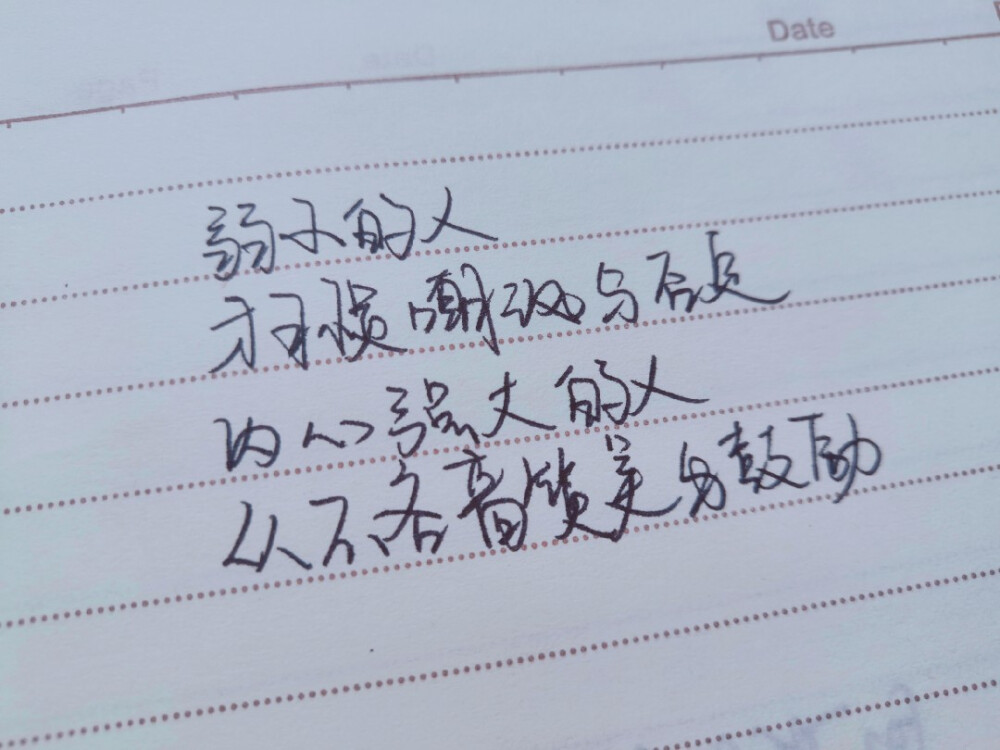 Date
弱小的人
才习惯嘲讽与否定
内心强大的人
从不吝啬赞美与鼓励